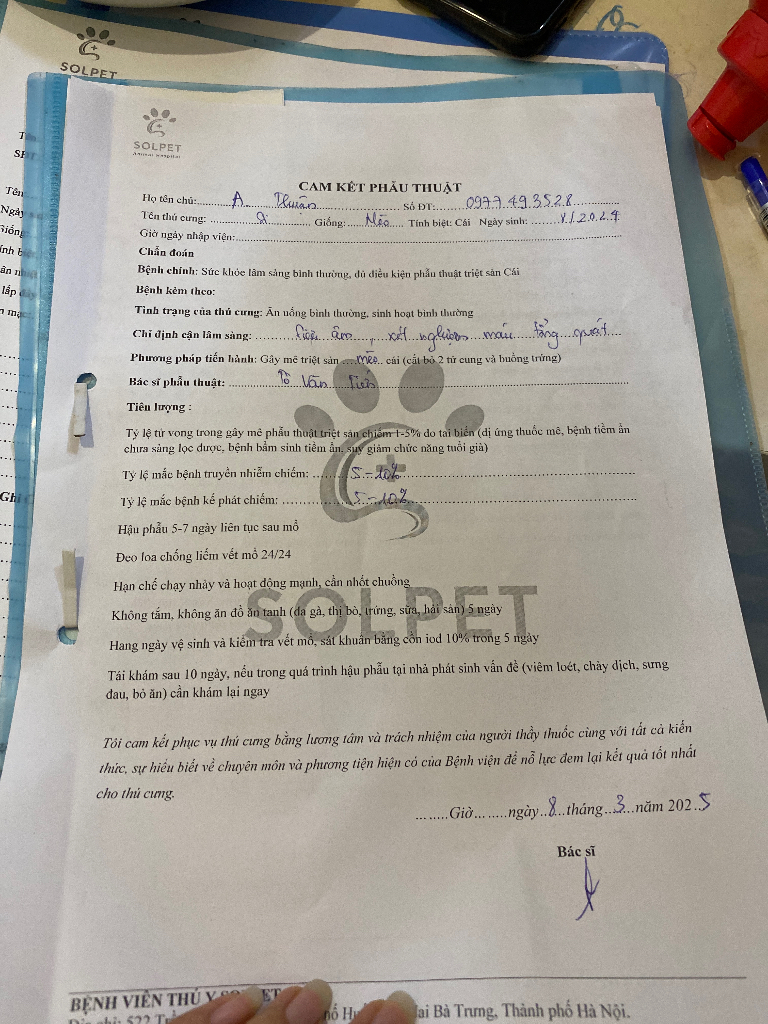 SOLPET
SOLPET
Animal Hospital
CAM KẾT PHẪU THUẬT
Họ tên chủ: A Thuân Số ĐT: 0977.49.3528
Tên thú cưng: Giống: Mèo Tính biệt: Cái Ngày sinh: 1/2024
Giờ ngày nhập viện:
Chẩn đoán
Bệnh chính: Sức khỏe lâm sàng bình thường, đủ điều kiện phẫu thuật triệt sản Cái
Bệnh kèm theo:
Tình trạng của thú cưng: Ăn uống bình thường, sinh hoạt bình thường
Chỉ định cận lâm sàng: siêu âm, xét nghiệm máu tổng quát
Phương pháp tiến hành: Gây mê triệt sản mèo cái (cắt bỏ 2 tử cung và buồng trứng)
Bác sĩ phẫu thuật: Tô Văn Tiến
Tiên lượng :
Tỷ lệ tử vong trong gây mê phẫu thuật triệt sản chiếm 1-5% do tai biến (dị ứng thuốc mê, bệnh tiềm ẩn
chưa sàng lọc được, bệnh bẩm sinh tiềm ẩn, suy giảm chức năng tuổi già)
Tỷ lệ mắc bệnh truyền nhiễm chiếm: 5-10%
Tỷ lệ mắc bệnh kế phát chiếm: 5-10%
Hậu phẫu 5-7 ngày liên tục sau mổ
Đeo loa chống liếm vết mổ 24/24
Hạn chế chạy nhảy và hoạt động mạnh, cần nhốt chuồng
Không tắm, không ăn đồ ăn tanh (da gà, thị bò, trứng, sữa, hải sản) 5 ngày
Hang ngày vệ sinh và kiểm tra vết mổ, sát khuẩn bằng cồn iod 10% trong 5 ngày
Tái khám sau 10 ngày, nếu trong quá trình hậu phẫu tại nhà phát sinh vấn đề (viêm loét, chảy dịch, sưng
đau, bỏ ăn) cần khám lại ngay
SOLPET
Tôi cam kết phục vụ thú cưng bằng lương tâm và trách nhiệm của người thầy thuốc cùng với tất cả kiến
thức, sự hiểu biết về chuyên môn và phương tiện hiện có của Bệnh viện để nỗ lực đem lại kết quả tốt nhất
cho thú cưng.
........Giờ........ngày..8..tháng..3..năm 2025
Bác sĩ
BỆNH VIỆN THÚ Y SOLPET
522 ai Bà Trưng, Thành phố Hà Nội.